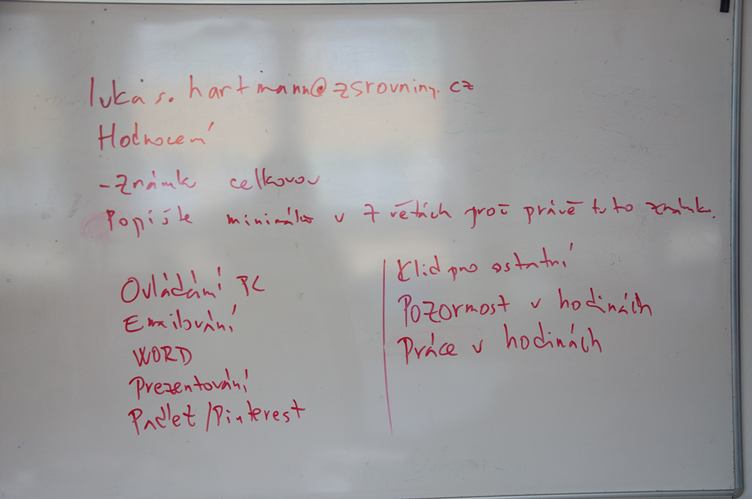 lukas.hartmann@zsrovniny.cz
Hodnocení
-Známk celkovou
Popište minimálně v 7 větách proč právě tuto známk.
Ovládání PC
Emailování
WORD
Prezentování
Padlet/Pinterest
Klid pro ostatní
Pozornost v hodinách
Práce v hodinách